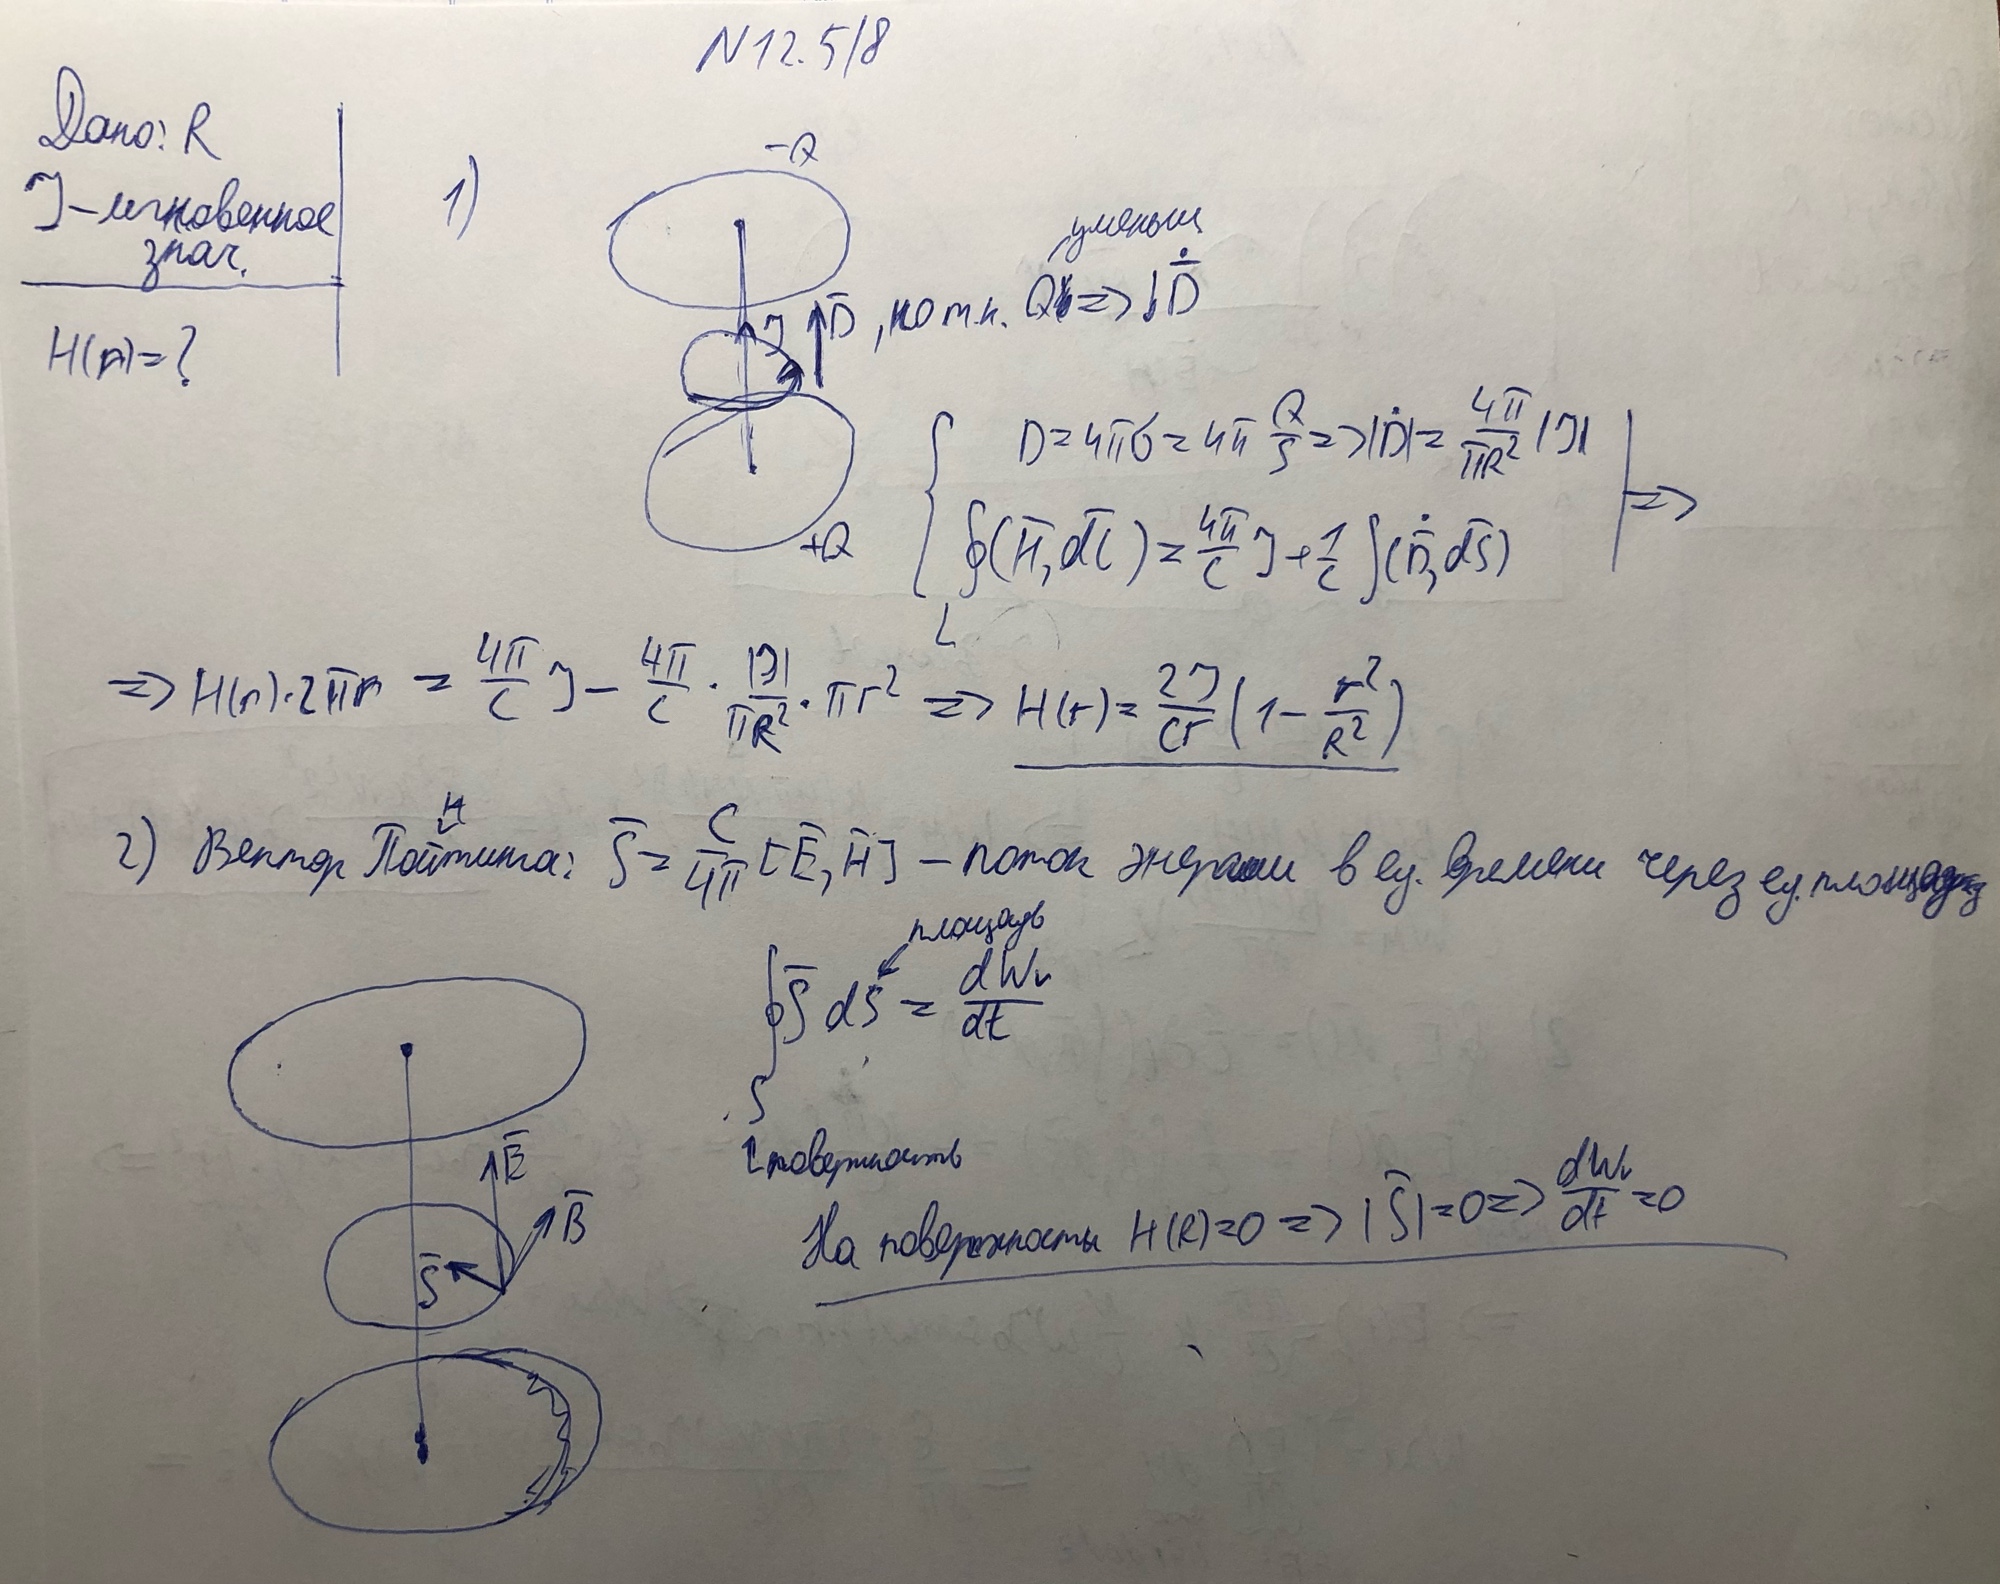 N12.5/8
Дано: R
J – мгновенное
знач.
H(r)=?
1)
-Q
уменьш
J D̄, но т.к. Q => ↓ D̄̇
+Q
D = 4πσ = 4π Q/S => |Ḋ| = 4π/(πR²) |J|
∮(H̄, dl̄) = 4π/c J + 1/c ∫(D̄̇, dS̄) | =>
L
=> H(r)·2πr = 4π/c J – 4π/c · |J|/(πR²) · πr² => H(r) = 2J/(cr) (1 – r²/R²)
н
2) Вектор Пойтинга: S̄ = c/4π [Ē, H̄] – поток энергии в ед. времени через ед. площадь
площадь
∮ S̄ dS = dW/dt
S
поверхность
Ē
B̄
S̄
На поверхности H(R)=0 => |S̄|=0 => dW/dt = 0